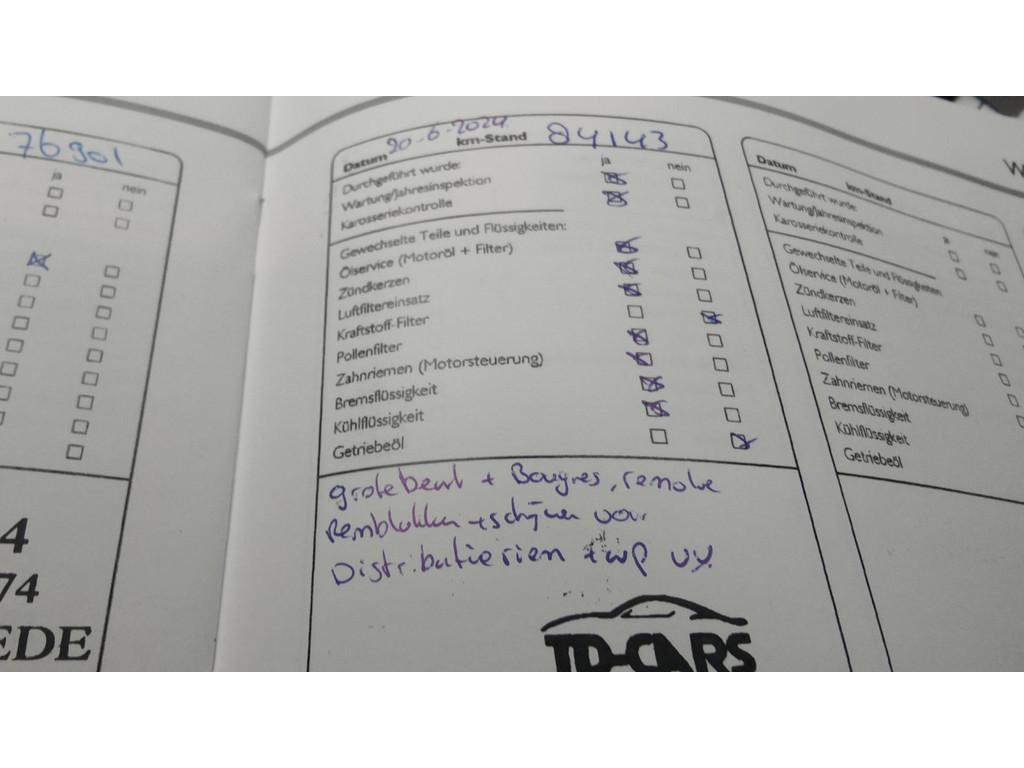 76901
ja
nein
4
74
EDE
Datum 20-6-2024 km-Stand 84143
Durchgeführt wurde: ja nein
Wartung/Jahresinspektion
Karosseriekontrolle
Gewechselte Teile und Flüssigkeiten:
Ölservice (Motoröl + Filter)
Zündkerzen
Luftfiltereinsatz
Kraftstoff-Filter
Pollenfilter
Zahnriemen (Motorsteuerung)
Bremsflüssigkeit
Kühlflüssigkeit
Getriebeöl
grotebeurt + Bougies, remolie
Remblokken + schijven voor
Distributieriem + wp vv.
TD-CARS
W
Datum km-Stand
Durchgeführt wurde: ja nein
Wartung/Jahresinspektion
Karosseriekontrolle
Gewechselte Teile und Flüssigkeiten:
Ölservice (Motoröl + Filter)
Zündkerzen
Luftfiltereinsatz
Kraftstoff-Filter
Pollenfilter
Zahnriemen (Motorsteuerung)
Bremsflüssigkeit
Kühlflüssigkeit
Getriebeöl